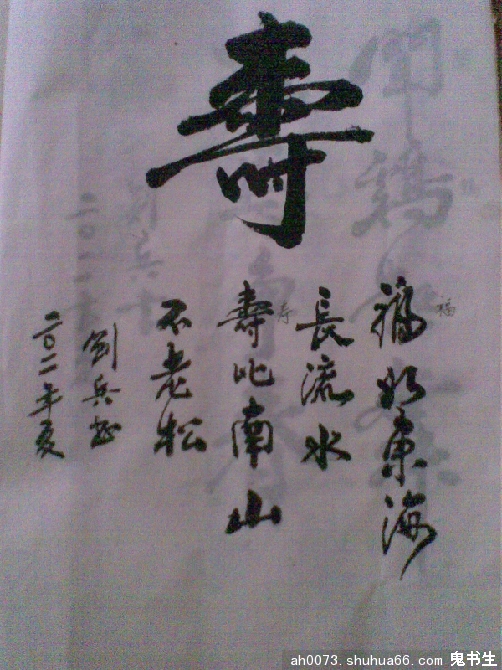 壽
福如東海
長流水
壽比南山
不老松
劉兵书
二〇一一年夏
福
寿
ah0073.shuhua66.com 鬼书生